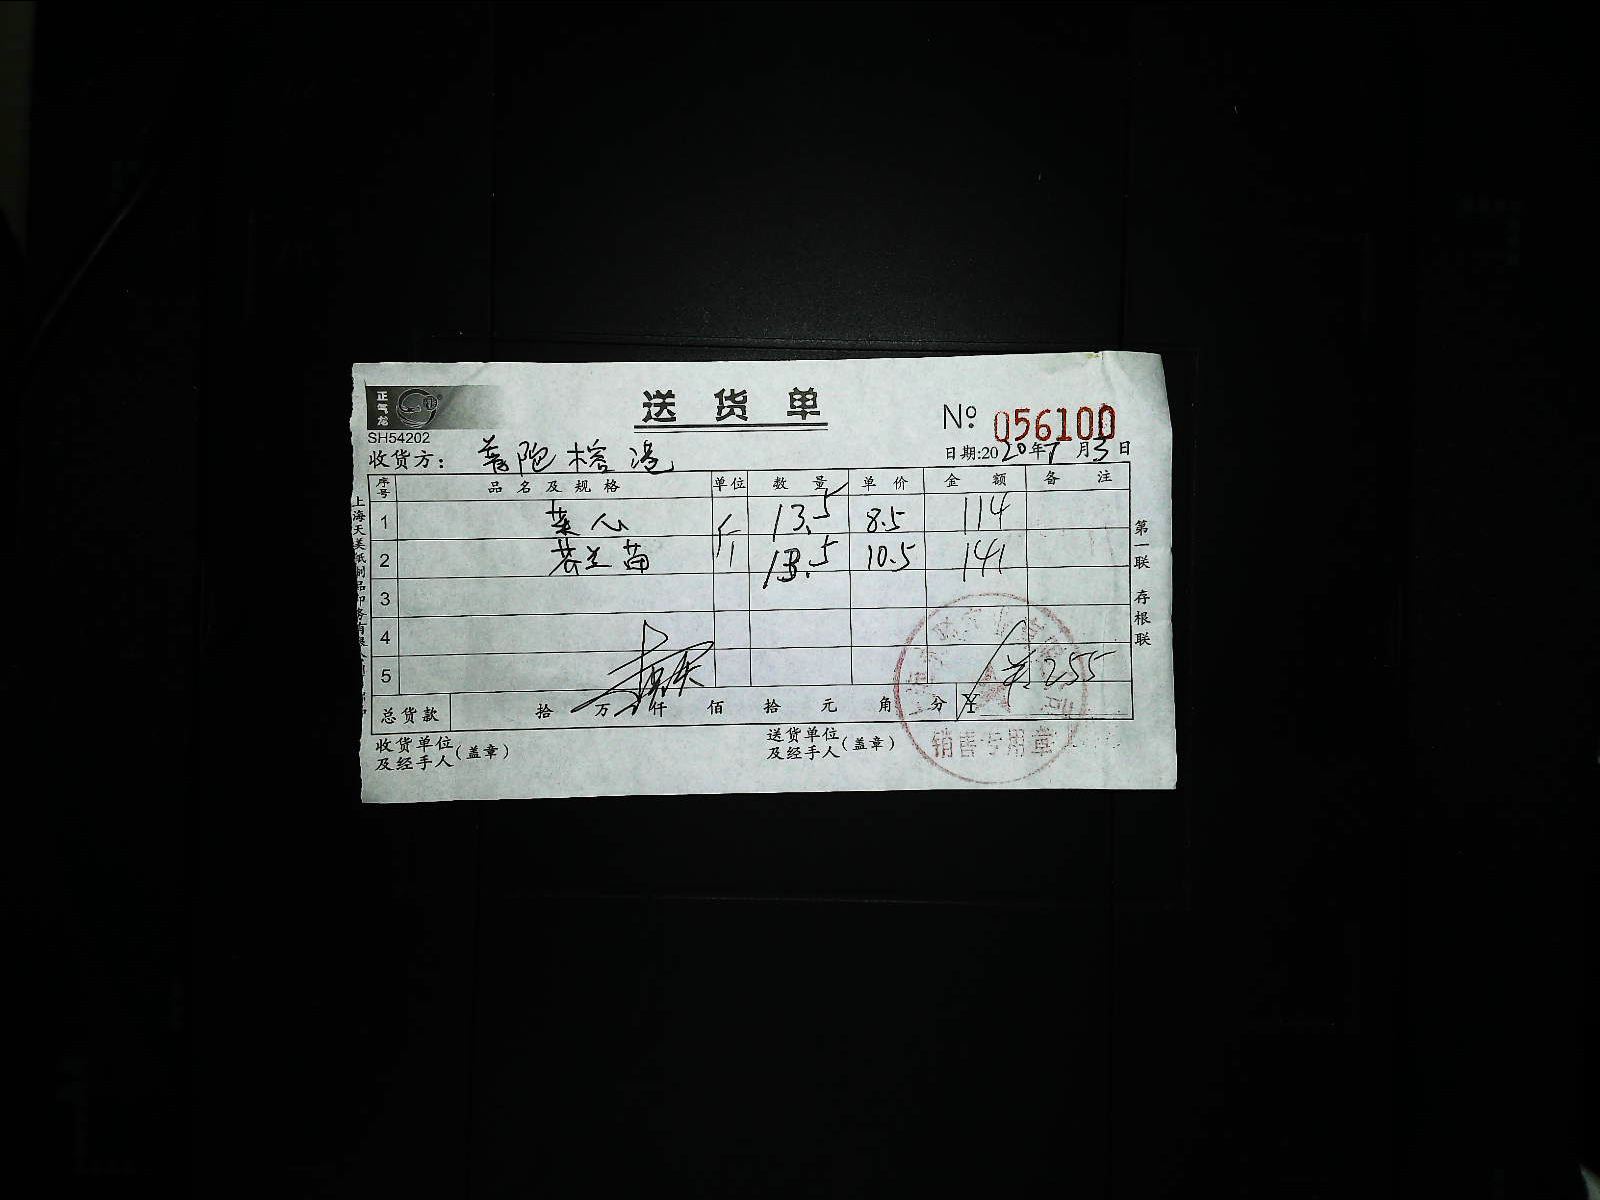 正气龙
送货单
№ 056100
SH54202
收货方: 普陀榕港
日期:2020年7月3日
序号 品名及规格 单位 数量 单价 金额 备注
1 菜心 斤 13.5 8.5 114
2 芥兰苗 斤 13.5 10.5 141
3
4
5
¥255
总货款 拾 万 仟 佰 拾 元 角 分 ¥
收货单位及经手人(盖章)
送货单位及经手人(盖章)
销售专用章
第一联 存根联
上海天美纸制品印务有限公司